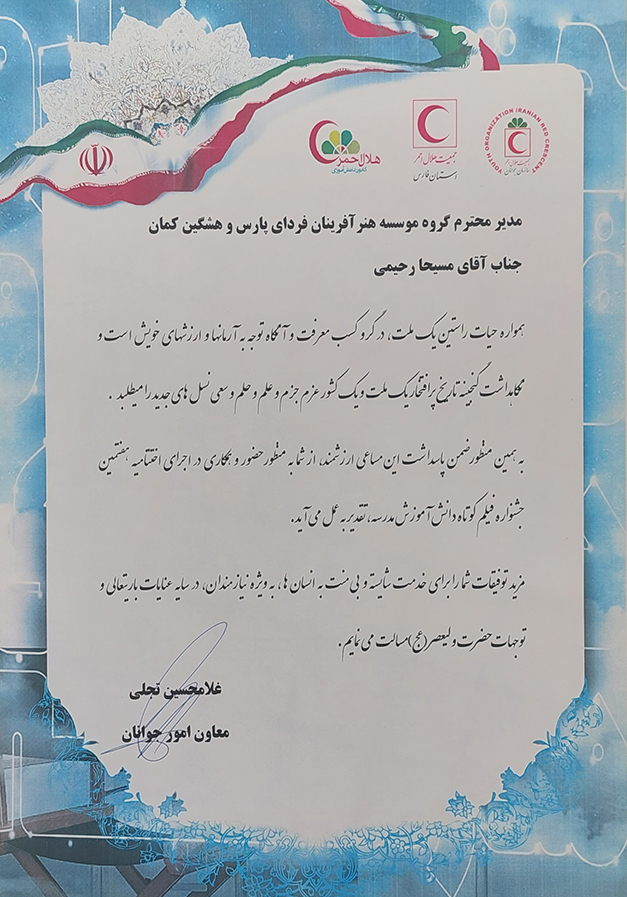 YOUTH ORGANIZATION IRANIAN RED CRESCENT
جمعیت هلال احمر
سازمان جوانان
جمعیت هلال احمر
استان فارس
هلال احمر
کانون دانش آموزی
مدیر محترم گروه موسسه هنرآفرینان فردای پارس و هشگین کمان
جناب آقای مسیحا رحیمی
همواره حیات راستین یک ملت، در گرو کسب معرفت و آنگاه توجه به آرمانها و ارزشهای خویش است و
نگاهداشت گنجینه تاریخ پرافتخار یک ملت و یک کشور عزم جزم و علم و حلم و سعی نسل های جدید را میطلبد .
به همین منظور ضمن پاسداشت این مساعی ارزشمند، از شما به منظور حضور و همکاری در اجرای اختتامیه هفتمین
جشنواره فیلم کوتاه دانش آموزش مدرسه، تقدیر به عمل می آید.
مزید توفیقات شما را برای خدمت شایسته و بی منت به انسان ها، به ویژه نیازمندان، در سایه عنایات باریتعالی و
توجهات حضرت ولیعصر(عج) مسالت می نمایم.
غلامحسین تجلی
معاون امور جوانان